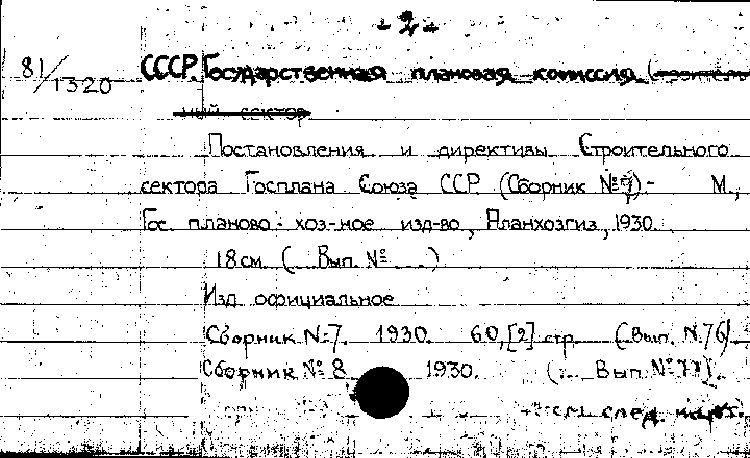 - 2 -
81/1320 СССР. Государственная плановая комиссия (строитель-
ный сектор
Постановления и директивы Строительного
сектора Госплана Союза ССР (Сборник № 7) - М.,
Гос. планово-хоз-ное изд-во, Планхозгиз, 1930.
18 см. ( Вып. № )
Изд. официальное
Сборник № 7. 1930. 60, [2] стр. (Вып. № 76)
Сборник № 8 1930. ( Вып. № 77).
см. след. карт.